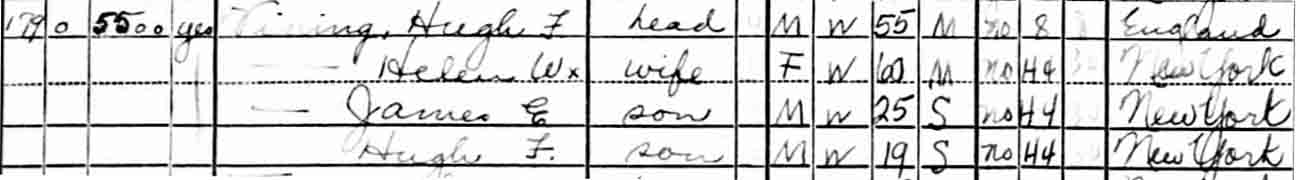 179 0 5500 yes Vining, Hugh F. head M W 55 M no 8 England
— Helen W x wife F W 60 M no H4 New York
— James E son M W 25 S no H4 New York
Hugh F. son M W 19 S no H4 New York